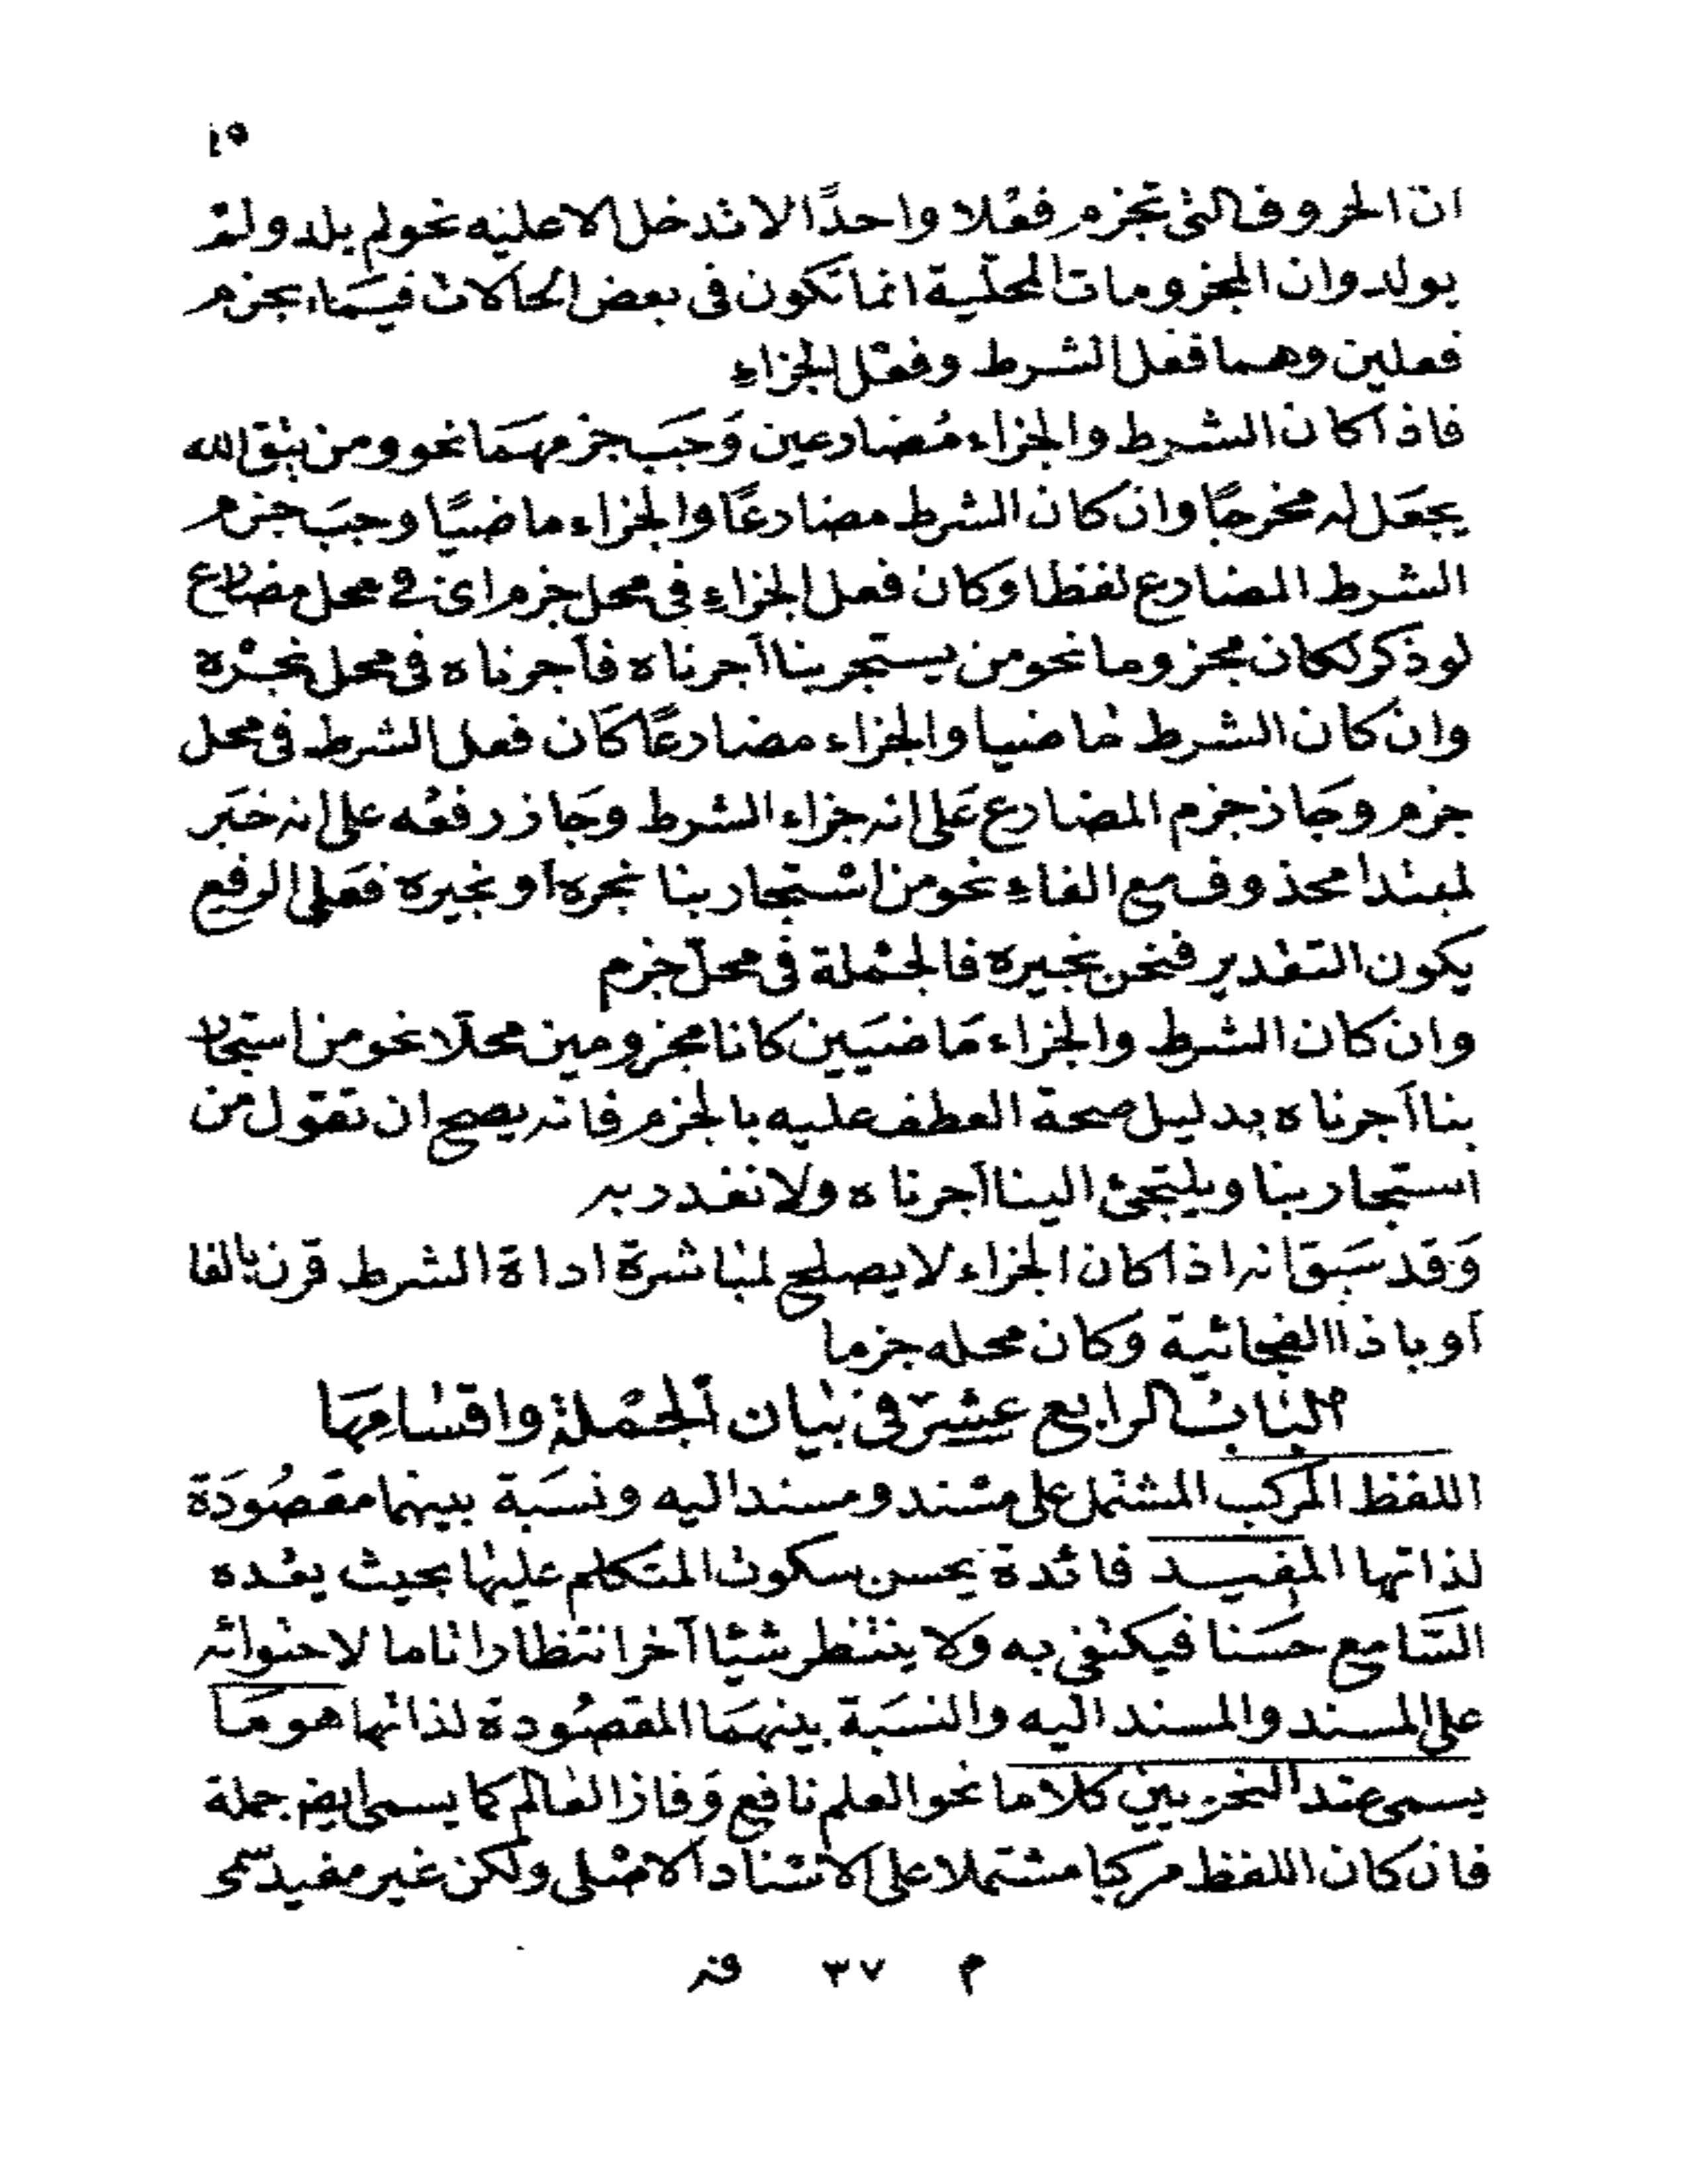 ٤٥
ان الحروف التى تجزم فعلا واحدًا لا تدخل الا عليه نحو لم يلد ولم
يولد وان المجزومات المحلّية انما تكون فى بعض الحالات فيمَا يجزم
فعلين وهما فعل الشرط وفعل الجزاءِ
فاذا كان الشرط والجزاء مُضارعين وَجَبَ جزمهمَا نحو ومن يتق الله
يجعَل له مخرجًا وان كان الشرط مضارعًا والجزاء ماضيًا وجبَ جزم
الشرط المضارع لفظا وكان فعل الجزاءِ فى محل جزم اى فى محل مضارع
لو ذكر لكان مجزوما نحو من يستجر بنا آجرناه فآجرناه فى محل نجْره
وان كان الشرط ماضيا والجزاء مضارعًا كَان فعل الشرط فى محل
جزم وجَاز جزم المضارع عَلى انه جزاء الشرط وجَاز رفعه على انه خبَر
لمبتدا محذوف مع الفاءِ نحو من استجار بنا نجره اَو نجيره فعَلى الرفع
يكون التقدير فنحن نجيره فالجملة فى محلّ جزم
وان كان الشرط والجزاء مَاضيَين كانا مجزومين محلّا نحو من استجار
بنا آجرناه بدليل صحة العطف عليه بالجزم فانه يصح ان تقول من
استجار بنا ويلتجئ الينا آجرناه ولا نغدر به
وَقد سَبق انه اذا كان الجزاء لا يصلح لمباشرة اداة الشرط قرن بالفا
اَو باذا الفجائية وكان محله جزما
الباب الرابع عشر فى بيان الجملة واقسامِهَا
اللفظ المركب المشتمل على مسند ومسند اليه ونسَبة بينهما مقصُودَة
لذاتها المفيد فائدة يحسن سكوت المتكلم عليها بحيث يعده
السَّامع حسَنا فيكتفى به ولا ينتظر شيئا آخر انتظارا تاما لاحتوائه
على المسند والمسند اليه والنسَبة بينهمَا المقصُودة لذاتها هو مَا
يسمى عند النحويين كلاما نحو العلم نافع وَفاز العالم كما يسمى ايضـ جملة
فان كان اللفظ مركبا مشتملا على الاسناد الاصْلى ولكن غير مفيد سمى
م ٣٧ قنـ